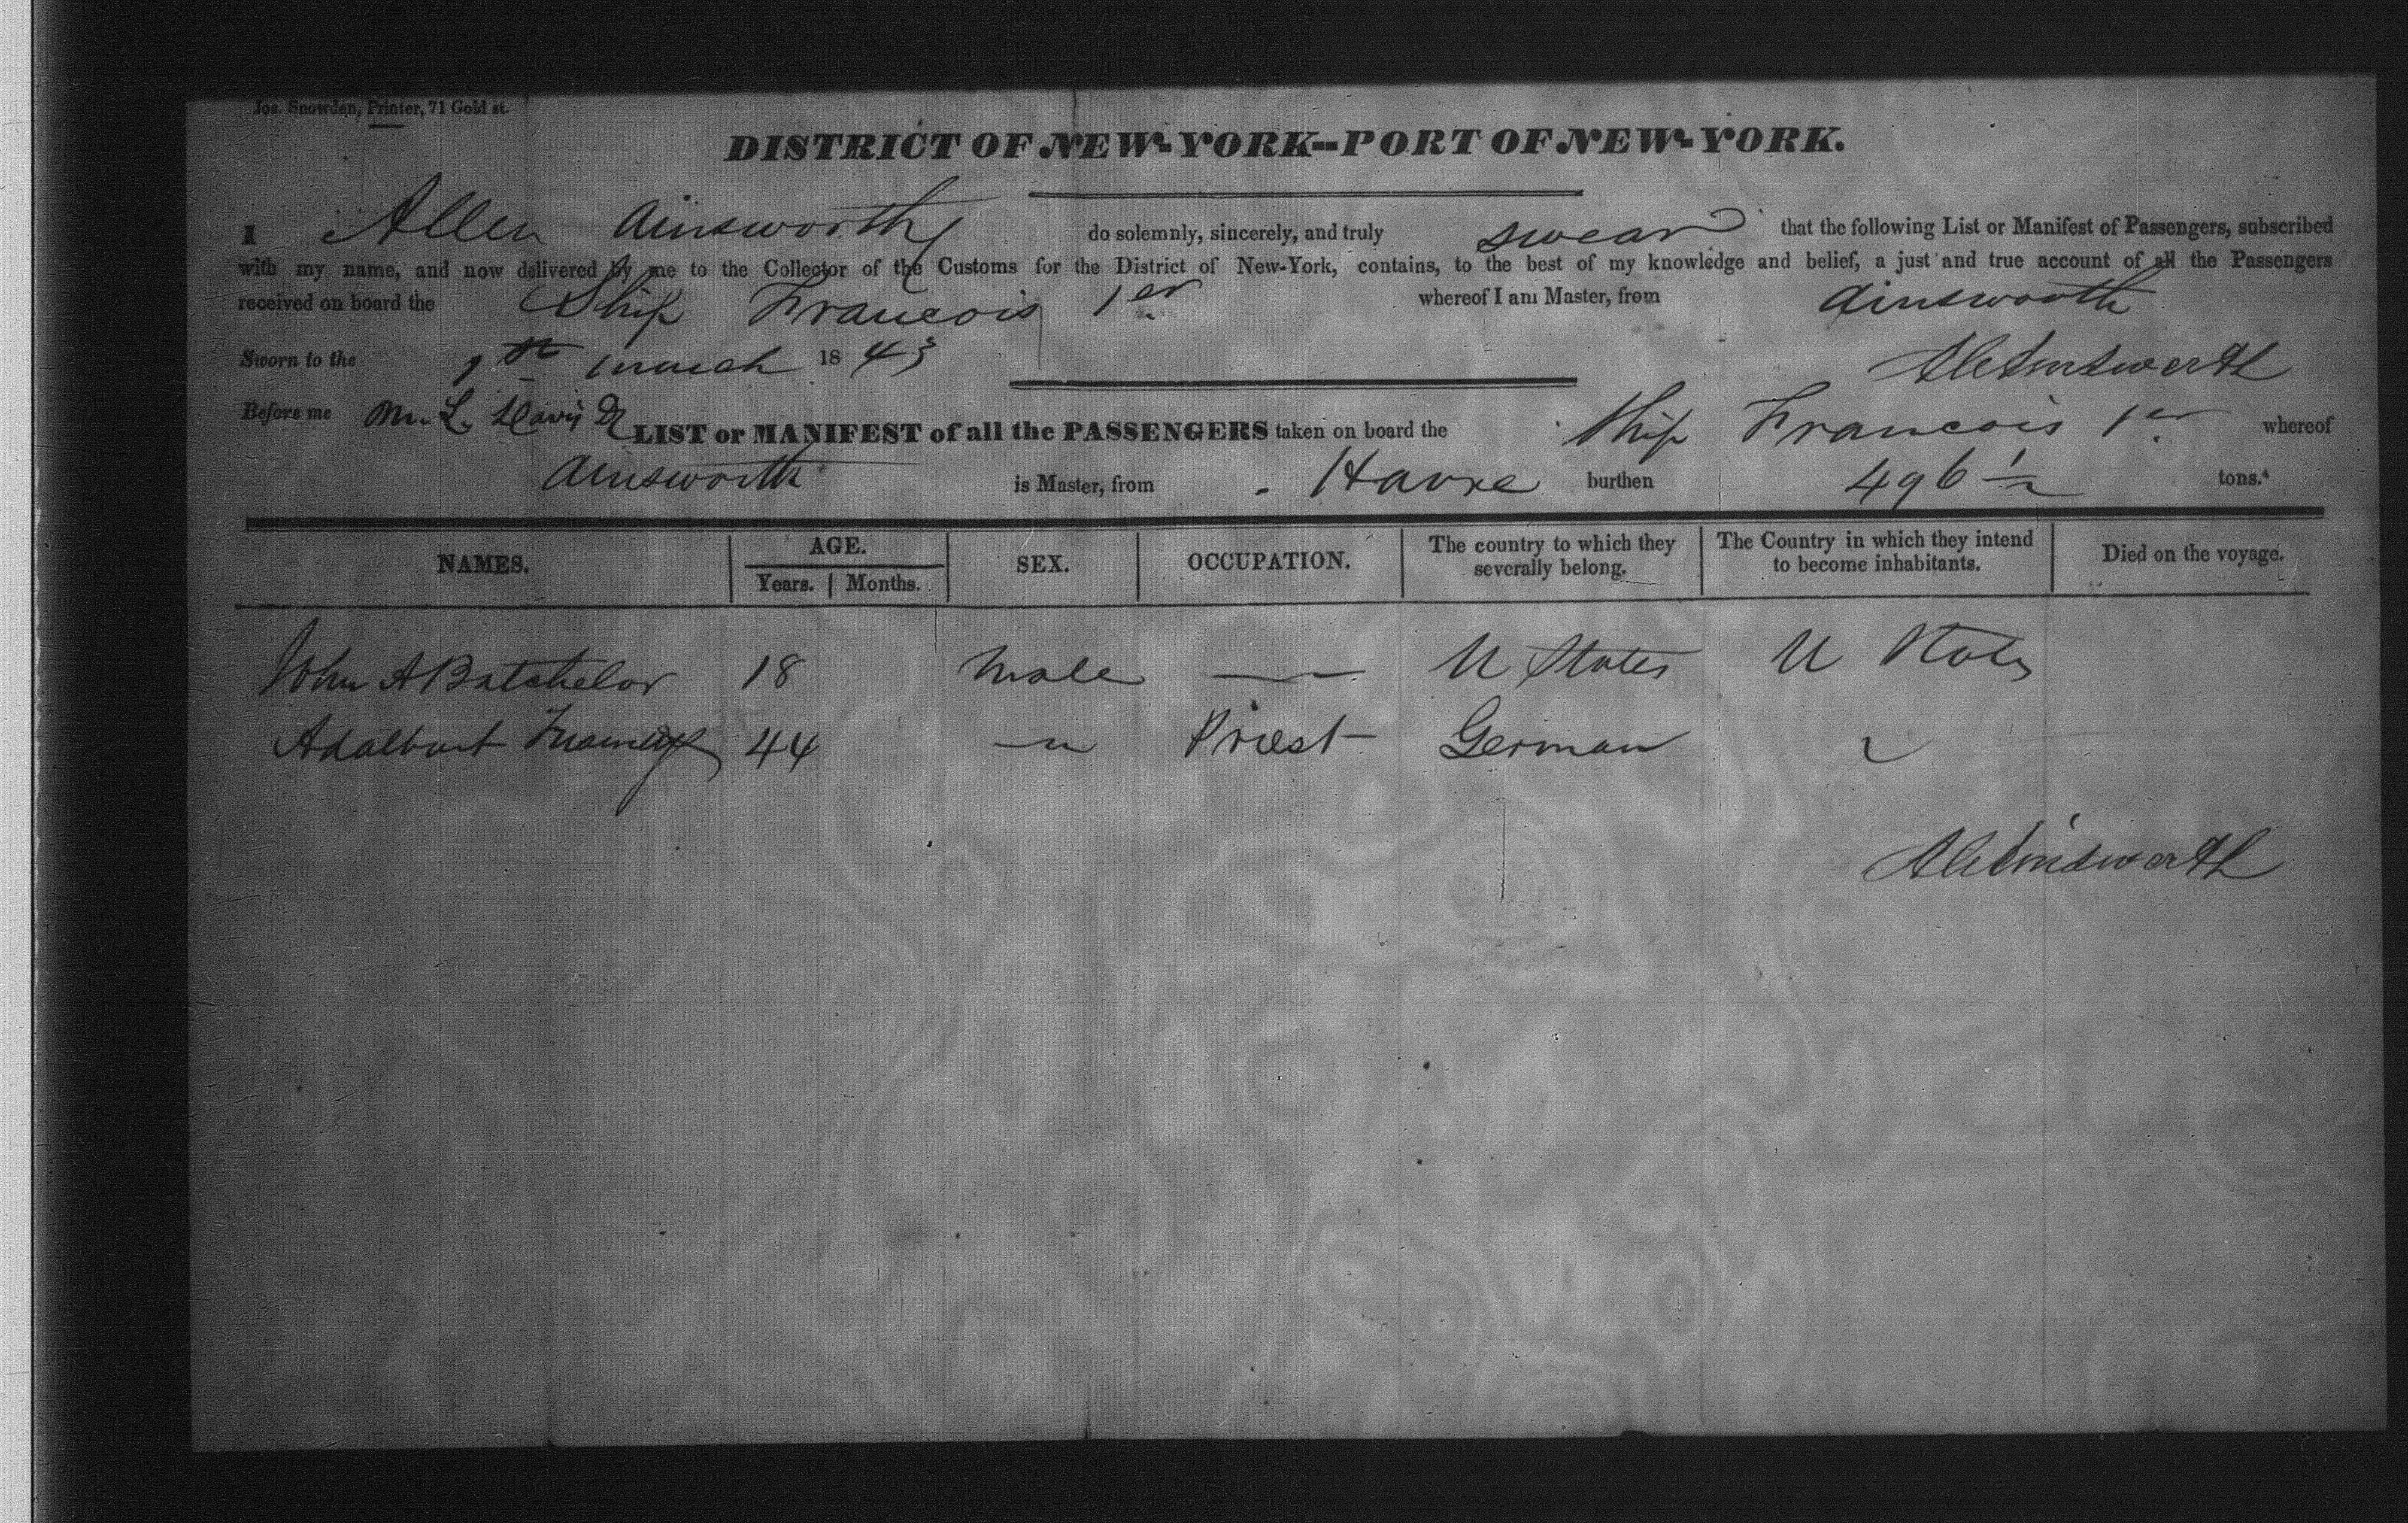 Jos. Snowden, Printer, 71 Gold st.
DISTRICT OF NEW-YORK--PORT OF NEW-YORK.
I Allen Ainsworth do solemnly, sincerely, and truly swear that the following List or Manifest of Passengers, subscribed
with my name, and now delivered by me to the Collector of the Customs for the District of New-York, contains, to the best of my knowledge and belief, a just and true account of all the Passengers
received on board the Ship Francois 1er whereof I am Master, from Ainsworth
Sworn to the th march 1843 Ainsworth
Before me M. L. Davis
LIST or MANIFEST of all the PASSENGERS taken on board the Ship Francois 1er whereof
Ainsworth is Master, from Havre burthen 496 1/2 tons.
NAMES. AGE. Years. Months. SEX. OCCUPATION. The country to which they severally belong. The Country in which they intend to become inhabitants. Died on the voyage.
John A Batchelor 18 male — U States U States
Adalbert 44 Priest German
Ainsworth